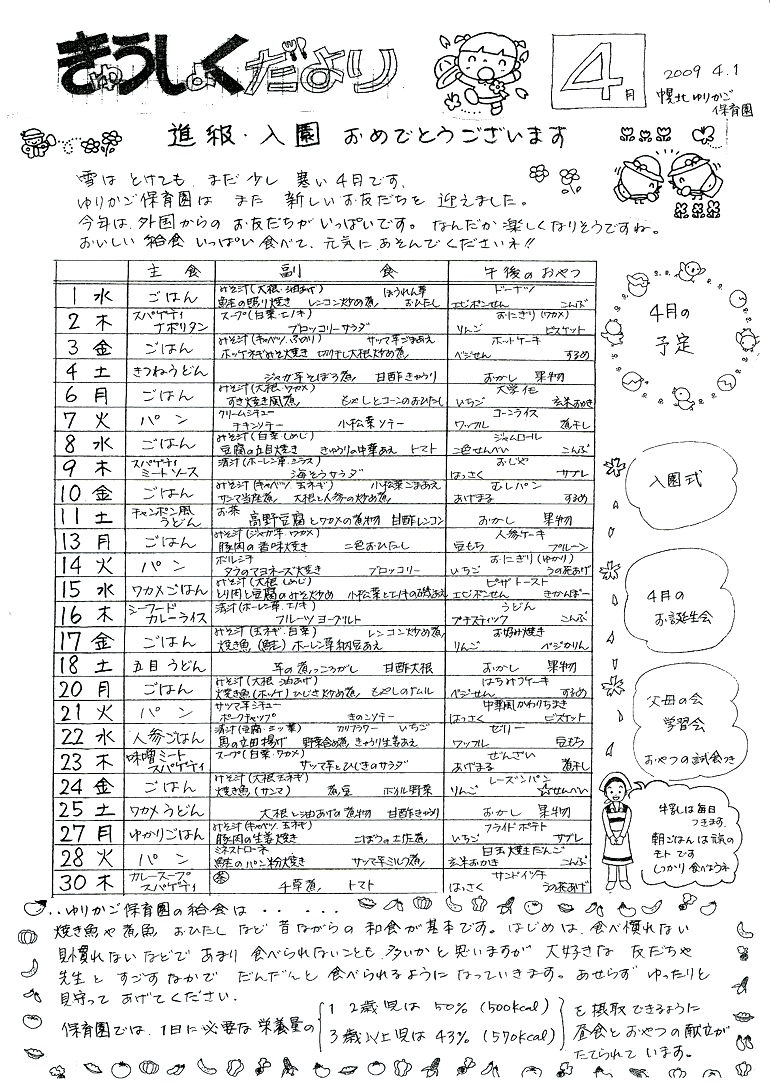 きゅうしょくだより
4月
2009 4.1
幌北ゆりかご
保育園
進級・入園 おめでとうございます
雪は とけても、まだ少し 寒い4月です。
ゆりかご保育園は また 新しいお友だちを 迎えました。
今年は、外国からの お友だちが いっぱいです。なんだか 楽しくなりそうですね。
おいしい 給食 いっぱい 食べて、元気に あそんでくださいネ!!
主 食 副 食 午後のおやつ
1 水 ごはん みそ汁(大根・油あげ) ほうれん草 ドーナツ
鮭の照り焼き レンコン炒め煮 おひたし エビポンせん こんぶ
2 木 スパゲティ スープ(白菜・エノキ) おにぎり(ワカメ)
ナポリタン ブロッコリーサラダ りんご ビスケット
3 金 ごはん みそ汁(キャベツ、ふのり) サツマ芋ごまあえ ホットケーキ
ホッケネギみそ焼き 切り干し大根炒め煮 ベジせん するめ
4 土 きつねうどん ジャガ芋そぼろ煮 甘酢きゅうり おかし 果物
6 月 ごはん みそ汁(大根・ワカメ) 大学イモ
すき焼き風煮 もやしとコーンのおひたし いちご 玄米おかき
7 火 パン クリームシチュー コーンライス
チキンソテー 小松菜ソテー ワッフル 煮干し
8 水 ごはん みそ汁(白菜・しめじ) ジャムロール
豆腐の五目焼き きゅうりの中華あえ トマト 二色せんべい こんぶ
9 木 スパゲティ 清汁(ホーレン草・シラス) おじや
ミートソース 海そうサラダ はっさく サブレ
10 金 ごはん みそ汁(キャベツ、玉ネギ) 小松菜ごまあえ むしパン
サンマ当座煮 大根と人参の炒め煮 あげまる するめ
11 土 チャンポン風 お茶
うどん 高野豆腐とワカメの煮物 甘酢レンコン おかし 果物
13 月 ごはん みそ汁(ジャガ芋 ワカメ) 人参ケーキ
豚肉の香味焼き 二色おひたし 豆もち プルーン
14 火 パン ボルシチ おにぎり(ゆかり)
タラのマヨネーズ焼き ブロッコリー いちご うの花あげ
15 水 ワカメごはん みそ汁(大根、しめじ) ピザトースト
とり肉と豆腐のみそ炒め 小松菜とエノキの磯あえ エビポンせん きかんぼー
16 木 シーフード 清汁(ホーレン草、エノキ) うどん
カレーライス フルーツヨーグルト プチスティック こんぶ
17 金 ごはん みそ汁(玉ネギ・白菜) レンコン炒め煮 お好み焼き
焼き魚(鮭) ホーレン草納豆あえ りんご ベジかりん
18 土 五目うどん 芋の煮っころがし 甘酢大根 おかし 果物
20 月 ごはん みそ汁(大根 油あげ) はちみつケーキ
焼き魚(ホッケ) ひじき炒め煮 もやしのナムル ベジせん するめ
21 火 パン サツマ芋シチュー 中華風かわりちまき
ポークチャップ きのこソテー はっさく ビスケット
22 水 人参ごはん 清汁(豆腐・三ッ葉) カリフラワー いちご ゼリー
鳥の立田揚げ 野菜含め煮 きゅうり生姜あえ ワッフル 豆もち
23 木 味噌ミート スープ(白菜・ワカメ) ぜんざい
スパゲティ サツマ芋とひじきのサラダ あげまる 煮干し
24 金 ごはん みそ汁(大根、玉ネギ) レーズンパン
焼き魚(サンマ) 煮豆 ボイル野菜 りんご ☆せんべい
25 土 ワカメうどん 大根と油あげの煮物 甘酢きゅうり おかし 果物
27 月 ゆかりごはん みそ汁(キャベツ、玉ネギ) フライドポテト
豚肉の生姜焼き ごぼうの土佐煮 いちご サブレ
28 火 パン ミネストローネ 白玉焼きだんご
鮭のパン粉焼き サツマ芋ミルク煮 玄米おかき こんぶ
30 木 カレースープ 茶 サンドイッチ
スパゲティ 千草煮 トマト はっさく うの花あげ
4月の
予定
入園式
4月の
お誕生会
父母の会
学習会
おやつの試食き
牛乳は毎日
つきます。
朝ごはんは頭の
モトです
しっかり食べようネ
‥ゆりかご保育園の給食は・・・・・
焼き魚や煮魚、おひたし など 昔ながらの 和食が基本です。はじめは、食べ慣れない
見慣れない などで あまり 食べられないことも 多いかと 思いますが 大好きな 友だちや
先生と すごすなかで だんだんと 食べられるように なっていきます。あせらず ゆったりと
見守って あげてください。
保育園では、1日に必要な栄養量の 1 2歳児は 50%(500kcal) を 摂取できるように
3歳以上児は 43%(570kcal) 昼食とおやつの献立が
たてられて います。